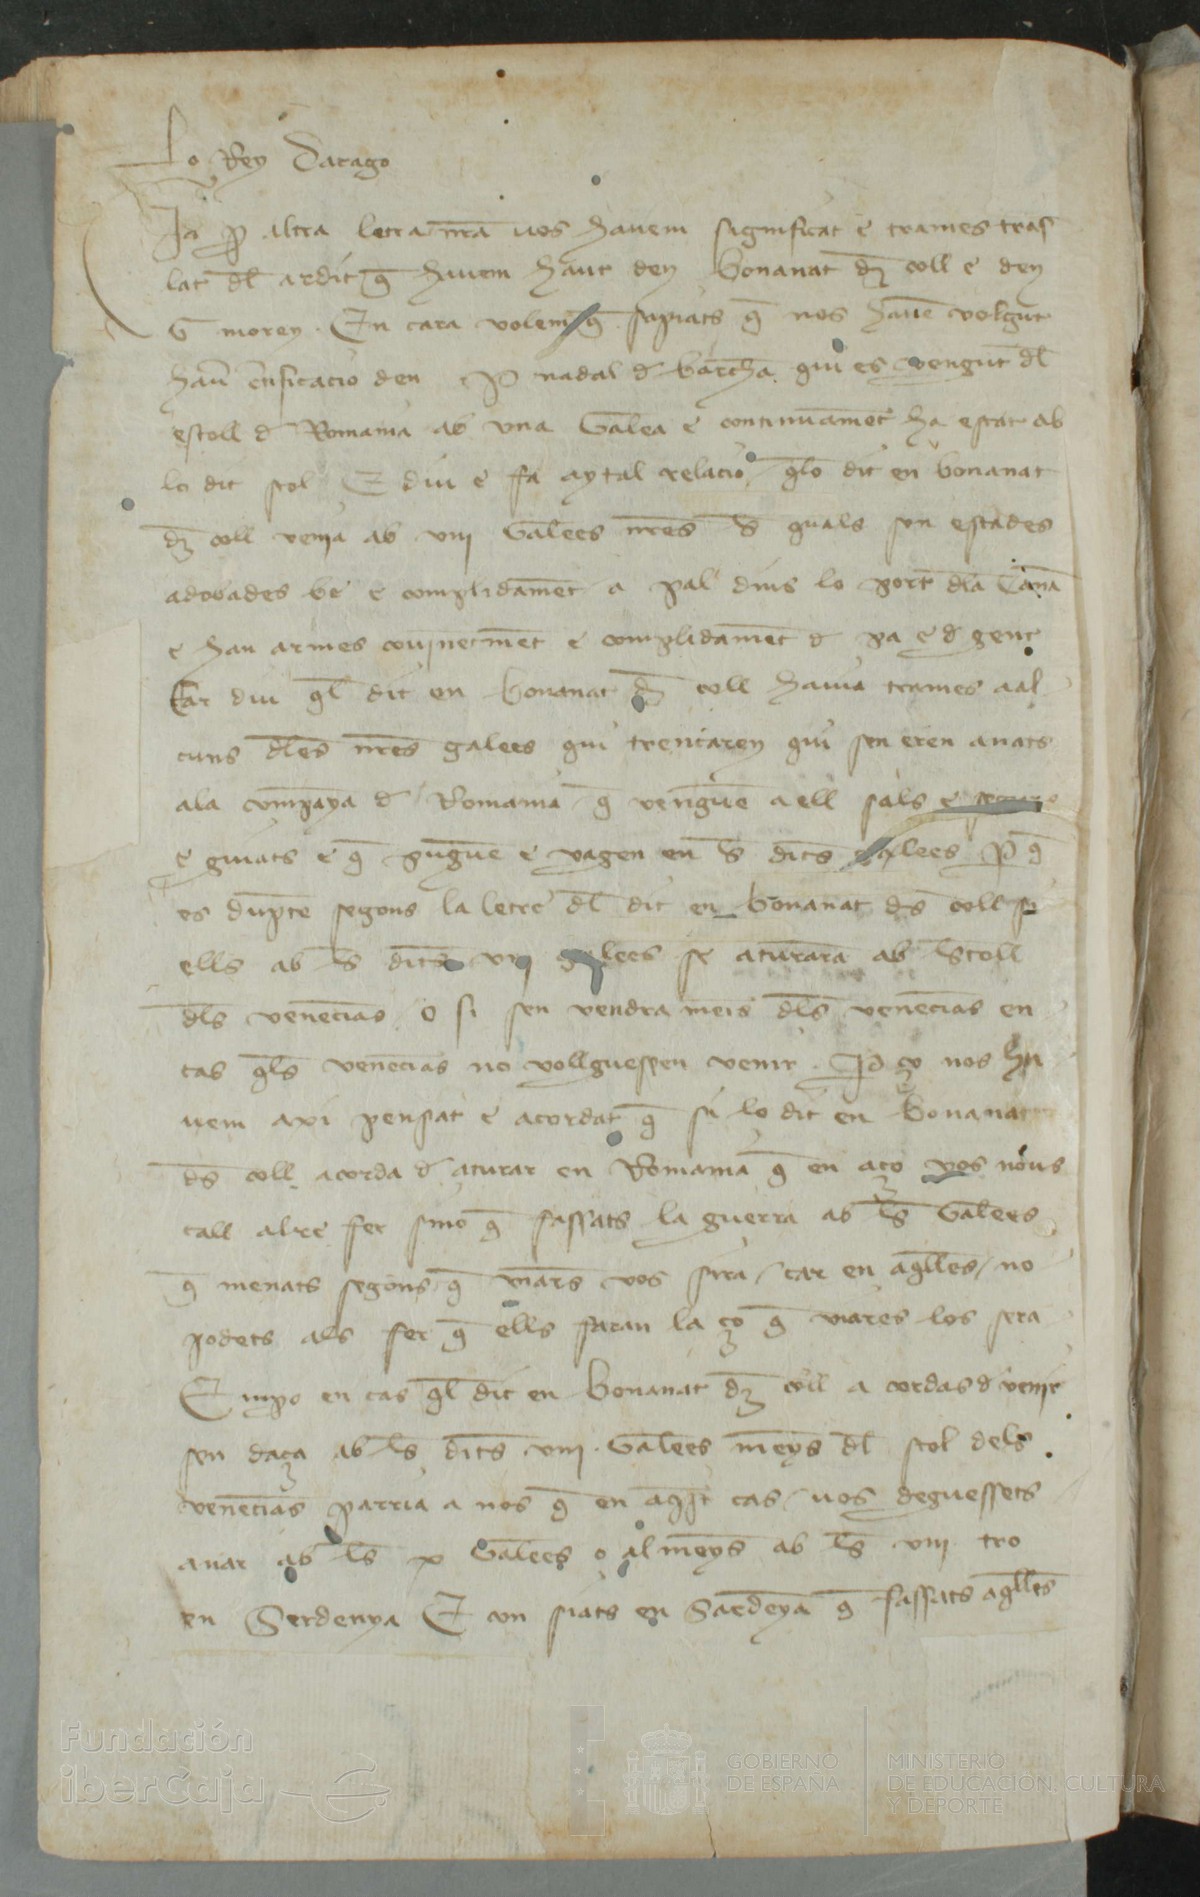 Lo Rey Darago
Ja p altra letra nrã uos hauem significat e trames tras
lat dl ardit q̃ hauem haut den bonanat dz coll e den
G moren. En cara volem q̃ sapiats q̃ nos hauẽ volgut
den P nadal d barchã qui es vengut dl
estoll d Romania ab vna Galea e continuamẽt ha estat ab
lo dit stol E diu e fa aytal relacio q̃lo dit en bonanat
dz coll venia ab viii Galees nr̃es ls quals son estades
adobades be e complidamẽt a pal dins lo port dla Canã
e han armes e complidamẽt d pa e d gent
Car diu q̃l dit en bonanat dz coll hauia trames aal
cuns dles nr̃es galees qui trencaren qui sen eren anats
ala companya d Romania q̃ venguẽ a ell sals e
e guiats e q̃ puguẽ e vagen en ls dits galees P q̃
es dupte segons la letre dl dit en bonanat ds coll si
ells ab ls dits viii galees se aturara ab lstoll
dls venecias o si sen vendra meis dls venecias en
cas q̃ls venecias no vollguessen venir. P ço nos ha
uem axi pensat e acordat q̃ si lo dit en bonanat
ds coll acorda d aturar en Romania q̃ en aço vos nous
call altre fer sino q̃ fassats la guerra ab ls Galees
q̃ menats segons q̃ viars vos sira / car en aq̃lles / no
podets als fer q̃ ells faran la ço q̃ viares los sera
E mpo en cas q̃l dit en bonanat dz coll a cordas d venir
sen daça ab ls dits viii. Galees meys dl stol dels
venecias parria a nos q̃ en aq̃st cas / uos deguessets
anar ab ls x Galees o al meys ab ls viii tro
en Serdenya E con siats en Sardeya q̃ fassats aq̃lles
Fundación
iberCaja
GOBIERNO
DE ESPAÑA
MINISTERIO
DE EDUCACIÓN, CULTURA
Y DEPORTE